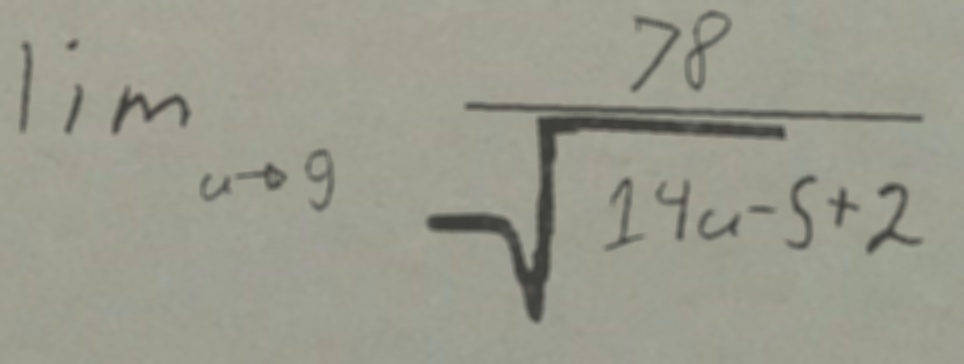 lim_{u→9} \frac{78}{\sqrt{14u-5}+2}